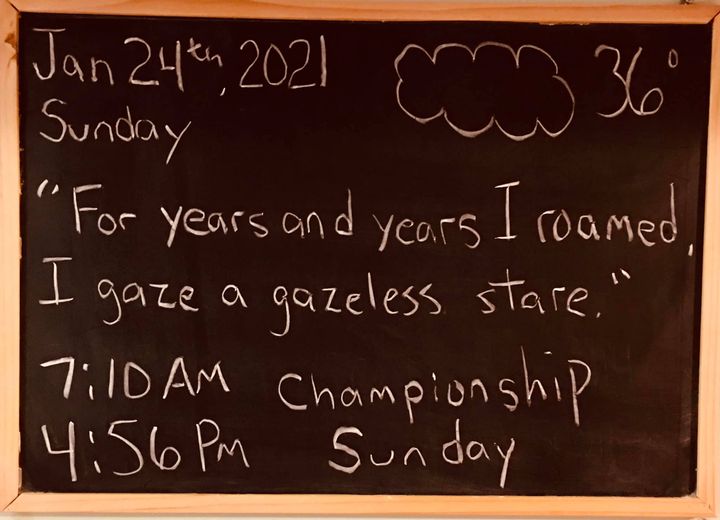 Jan 24th, 2021 36°
Sunday
"For years and years I roamed,
I gaze a gazeless stare."
7:10 AM Championship
4:56 PM Sunday